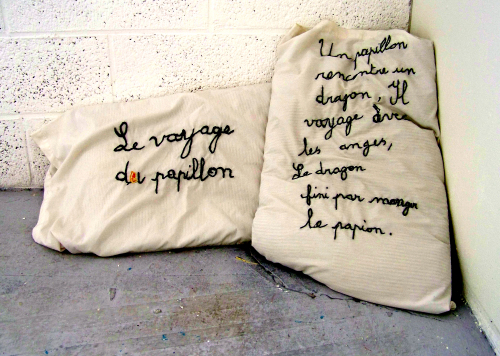 Le voyage
du papillon
Un papillon
rencontre un
dragon, Il
voyage àvec
les anges,
Le dragon
fini par manger
le papion.